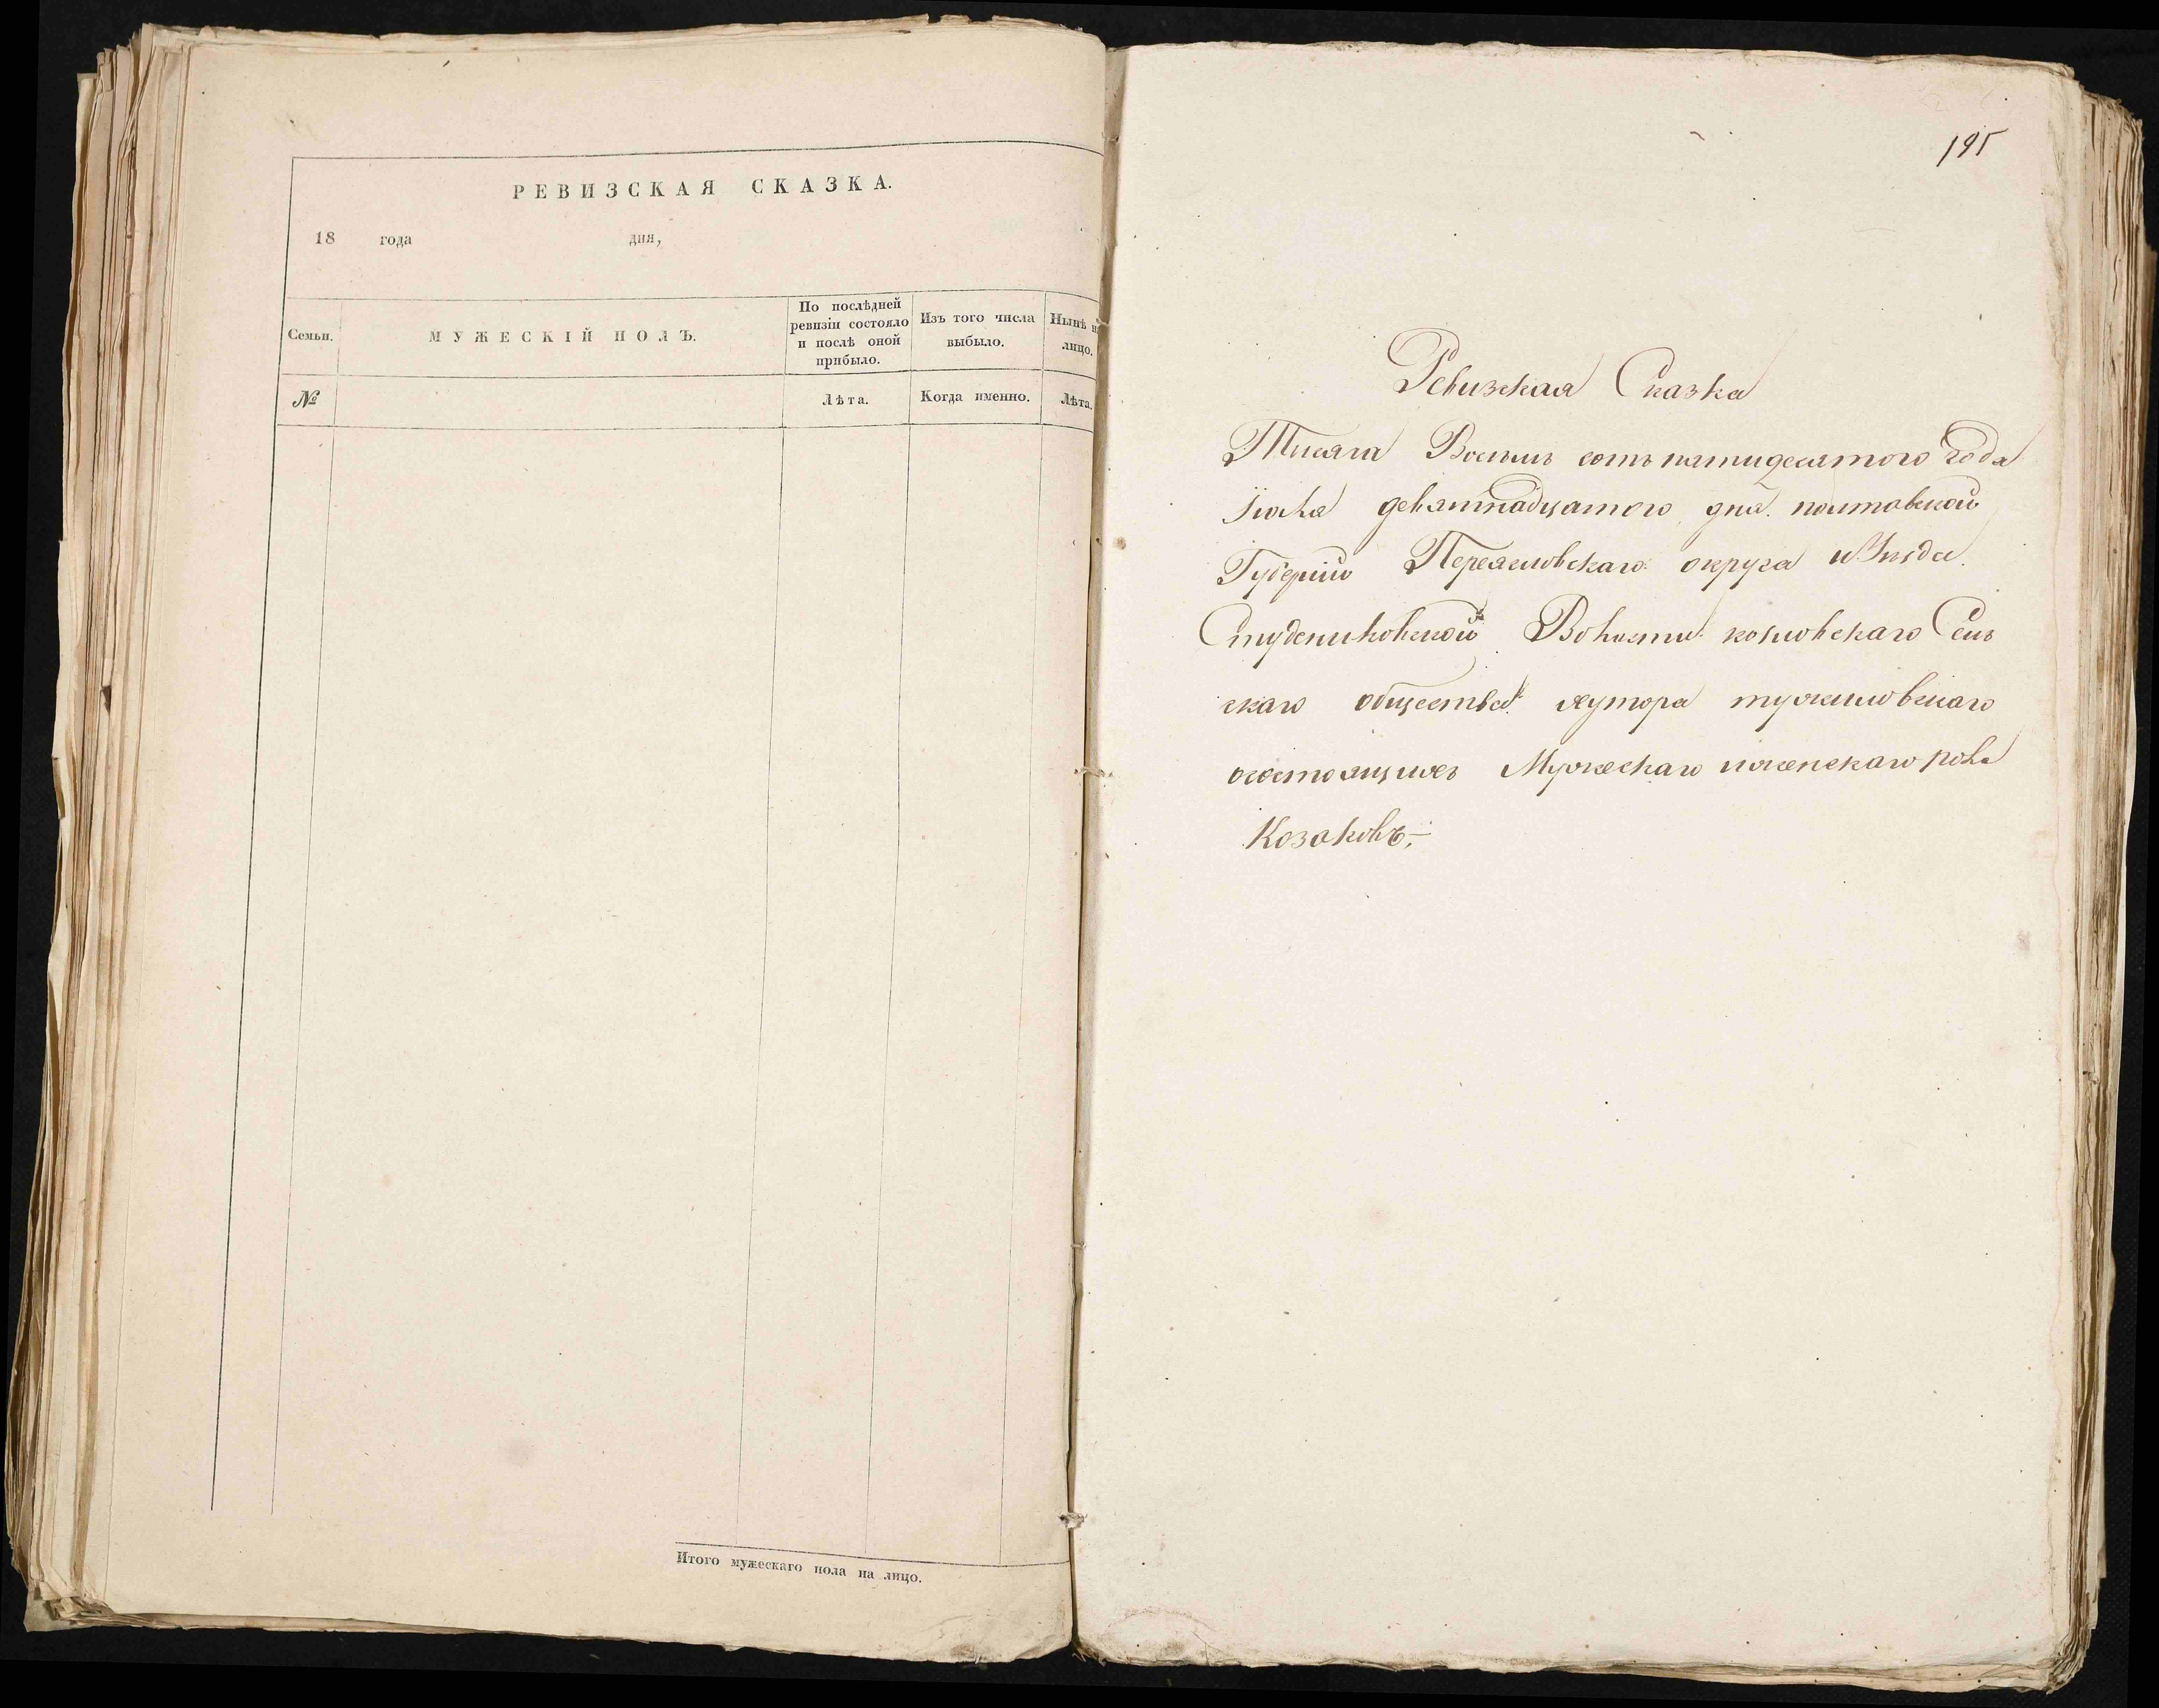 РЕВИЗСКАЯ СКАЗКА.
18 года дня,
Семьи.
МУЖЕСКІЙ ПОЛЪ.
По послѣдней
ревизіи состояло
и послѣ оной
прибыло.
Изъ того числа
выбыло.
Нынѣ н
лицо.
№
Лѣта.
Когда именно.
Лѣта.
Итого мужескаго пола на лицо.
195
Ревизская Сказка
Тисяча Восемь сотъ пятидесятого года
Іюля девятнадцатого дня. полтавской
Губерніи Переясловскаго округа и Уѣзда.
Студениковской Волости козловскаго Сель
скаго общества. хутора тужиловскаго
осостоящихъ Мужескаго и женскаго пола
Козаковъ;—